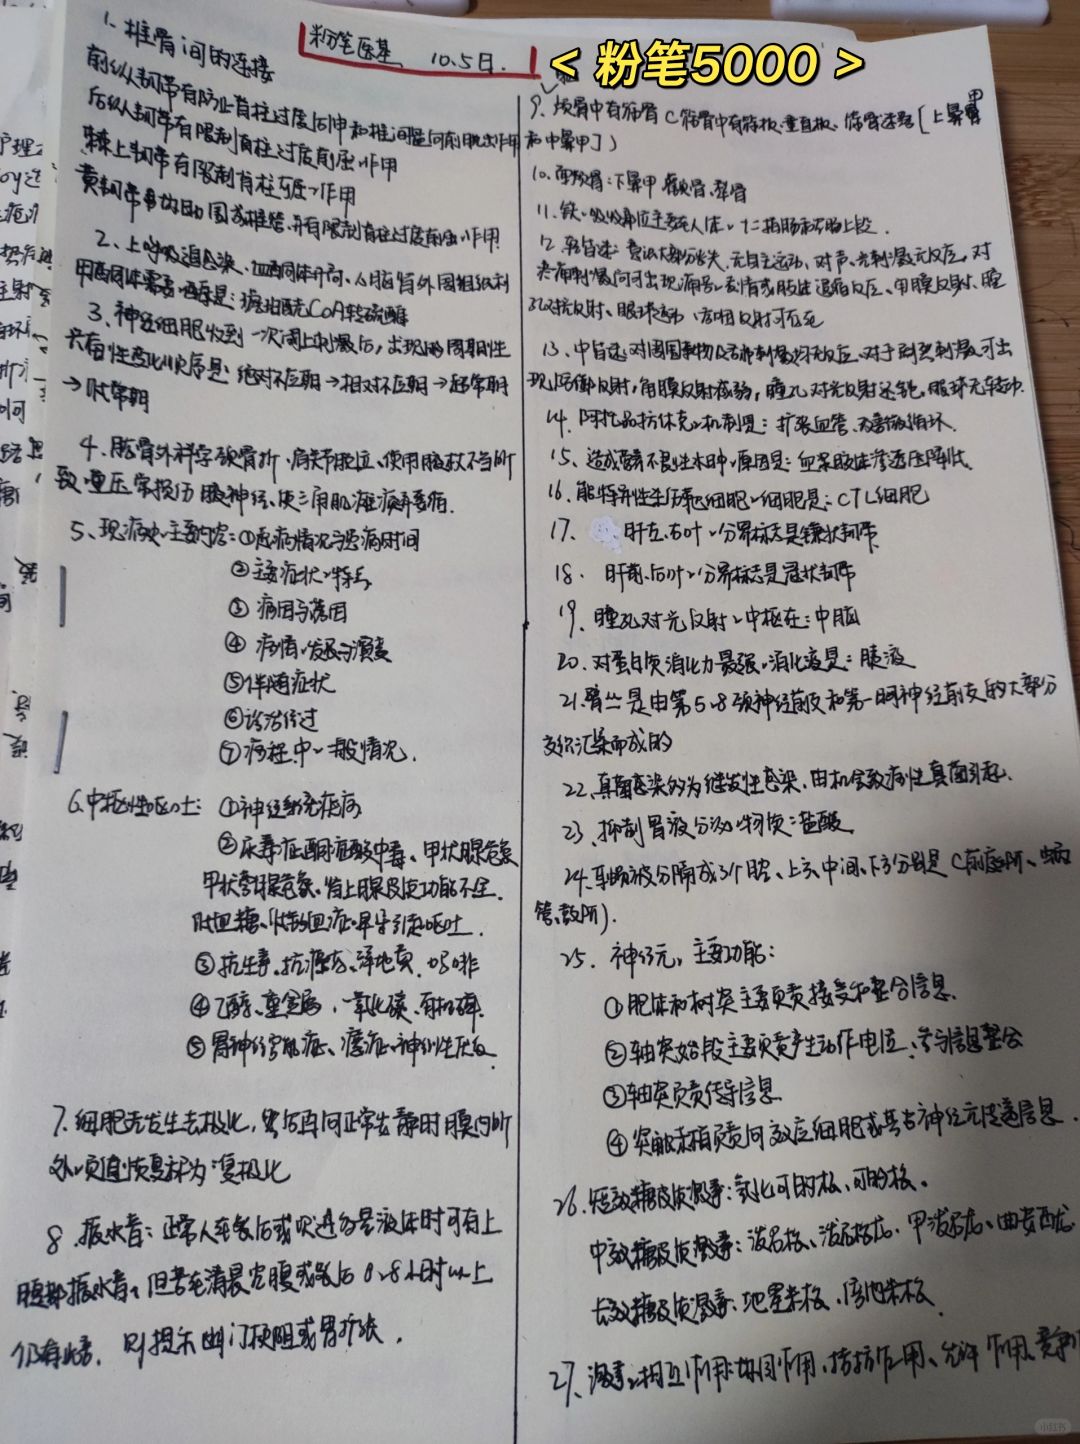 粉笔医基 10.5日.
<粉笔5000>
1、椎骨间的连接
前纵韧带有防止脊柱过度后伸和椎间盘向前脱出作用
后纵韧带有限制脊柱过度前屈作用
棘上韧带有限制脊柱前屈作用
黄韧带协助围成椎管,并有限制脊柱过度前屈作用.
2、上呼吸道感染
甲 CoA转硫酶
3、神经细胞收到一次阈上刺激后,出现的周期性
兴奋性变化顺序是:绝对不应期→相对不应期→超常期
→低常期
4、肱骨外科学颈骨折、肩关节脱位、使用腋杖不当所
致重压常损伤腋神经、使三角肌瘫痪
5、现病史主要内容:①患病情况与患病时间
②主要症状特点
③病因与诱因
④病情发展与演变
⑤伴随症状
⑥诊治经过
⑦病程中一般情况.
6、中枢性呕吐:①神经系统疾病
②尿毒症酮症酸中毒、甲状腺危象
甲状旁腺危象、肾上腺皮质功能不全.
低血糖、低钠血症早孕引起呕吐.
③抗生素、抗癌药、洋地黄、吗啡
④乙醇、重金属、一氧化碳、有机磷.
⑤胃神经官能症、癔症、神经性厌食
7、细胞先发生去极化,然后再向正常安静时膜内所
处负值恢复称为复极化
8、振水音:正常人在餐后或饮进多量液体时可有上
腹部振水音,但若在清晨空腹或餐后6~8小时以上
仍有此音,则提示幽门梗阻或胃扩张.
9、颅骨中有筛骨(筛骨中有筛板、垂直板、筛骨迷路[上鼻甲
和中鼻甲])
10、面颅骨:下鼻甲、颧骨、犁骨
11、铁吸收部位主要在人体十二指肠和空肠上段.
12、轻昏迷:意识大部分丧失,无自主运动,对声、光刺激无反应,对
疼痛刺激尚可出现痛苦表情或肢体退缩反应、角膜反射、瞳
孔对光反射、眼球运动、吞咽反射可存在
13、中昏迷:对周围事物及各种刺激均无反应,对于剧烈刺激可出
现防御反射,角膜反射减弱,瞳孔对光反射迟钝,眼球无转动.
14、阿托品抗休克机制是:扩张血管、改善微循环.
15、造成营养不良性水肿原因是:血浆胶体渗透压降低.
16、能特异性杀伤靶细胞细胞是:CTL细胞
17、肝左、右叶分界标志是镰状韧带
18、肝前、后叶分界标志是冠状韧带
19、瞳孔对光反射中枢在:中脑
20、对蛋白质消化力最强消化液是:胰液
21、臂丛是由第5~8颈神经前支和第一胸神经前支的大部分
交织汇集而成的
22、真菌感染多为继发性感染,由机会致病性真菌引起.
23、抑制胃液分泌物质:盐酸
24、耳蜗被分隔成3个腔,上方、中间、下方分别是(前庭阶、蜗
管、鼓阶).
25、神经元主要功能:
①胞体和树突主要负责接受和整合信息.
②轴突始段主要负责产生动作电位、参与信息整合
③轴突负责传导信息
④突触末梢负责向效应细胞或其它神经元传递信息.
26、短效糖皮质激素:氢化可的松、可的松.
中效糖皮质激素:泼尼松、泼尼松龙、甲泼尼龙、曲安西龙
长效糖皮质激素:地塞米松、倍他米松
27、激素相互作用:协同作用、拮抗作用、允许作用、竞争
小红书